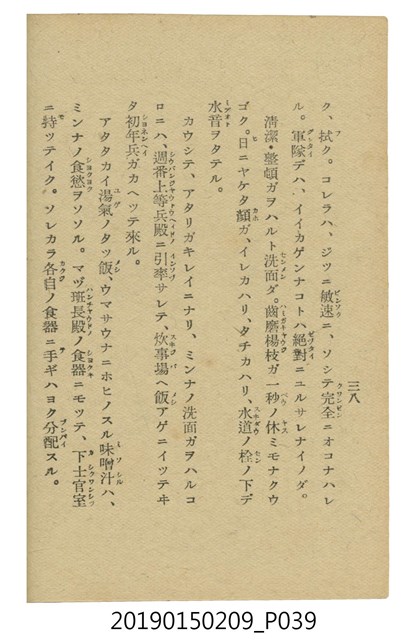 三八
ク、拭ク。コレラハ、ジツニ敏速ニ、ソシテ完全ニオコナハレ
ル。軍隊デハ、イイカゲンナコトハ絕對ニユルサレナイノダ。
淸潔・整頓ガヲハルト洗面ダ。齒磨楊枝ガ一秒ノ休ミモナクウ
ゴク。日ニヤケタ顏ガ、イレカハリ、タチカハリ、水道ノ栓ノ下デ
水音ヲタテル。
カウシテ、アタリガキレイニナリ、ミンナノ洗面ガヲハルコ
ロニハ、週番上等兵殿ニ引率サレテ、炊事場ヘ飯アゲニイッテヰ
タ初年兵ガカヘッテ來ル。
アタタカイ湯氣ノタツ飯、ウマサウナニホヒノスル味噌汁ハ、
ミンナノ食慾ヲソソル。マヅ班長殿ノ食器ニモッテ、下士官室
ニ持ッテイク。ソレカラ各自ノ食器ニ手ギハヨク分配スル。
20190150209_P039